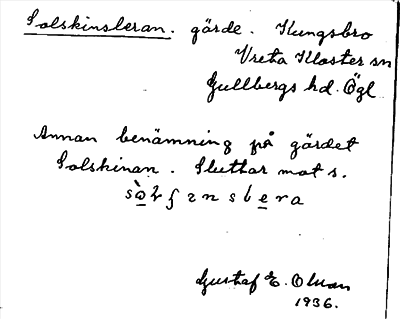 Solskinsleran. gärde. Kungsbro
Vreta Kloster sn
Gullbergs hd. Ögl
Annan benämning på gärdet
Solskinan. Sluttar mot s.
Gustaf E. Olsson
1936.